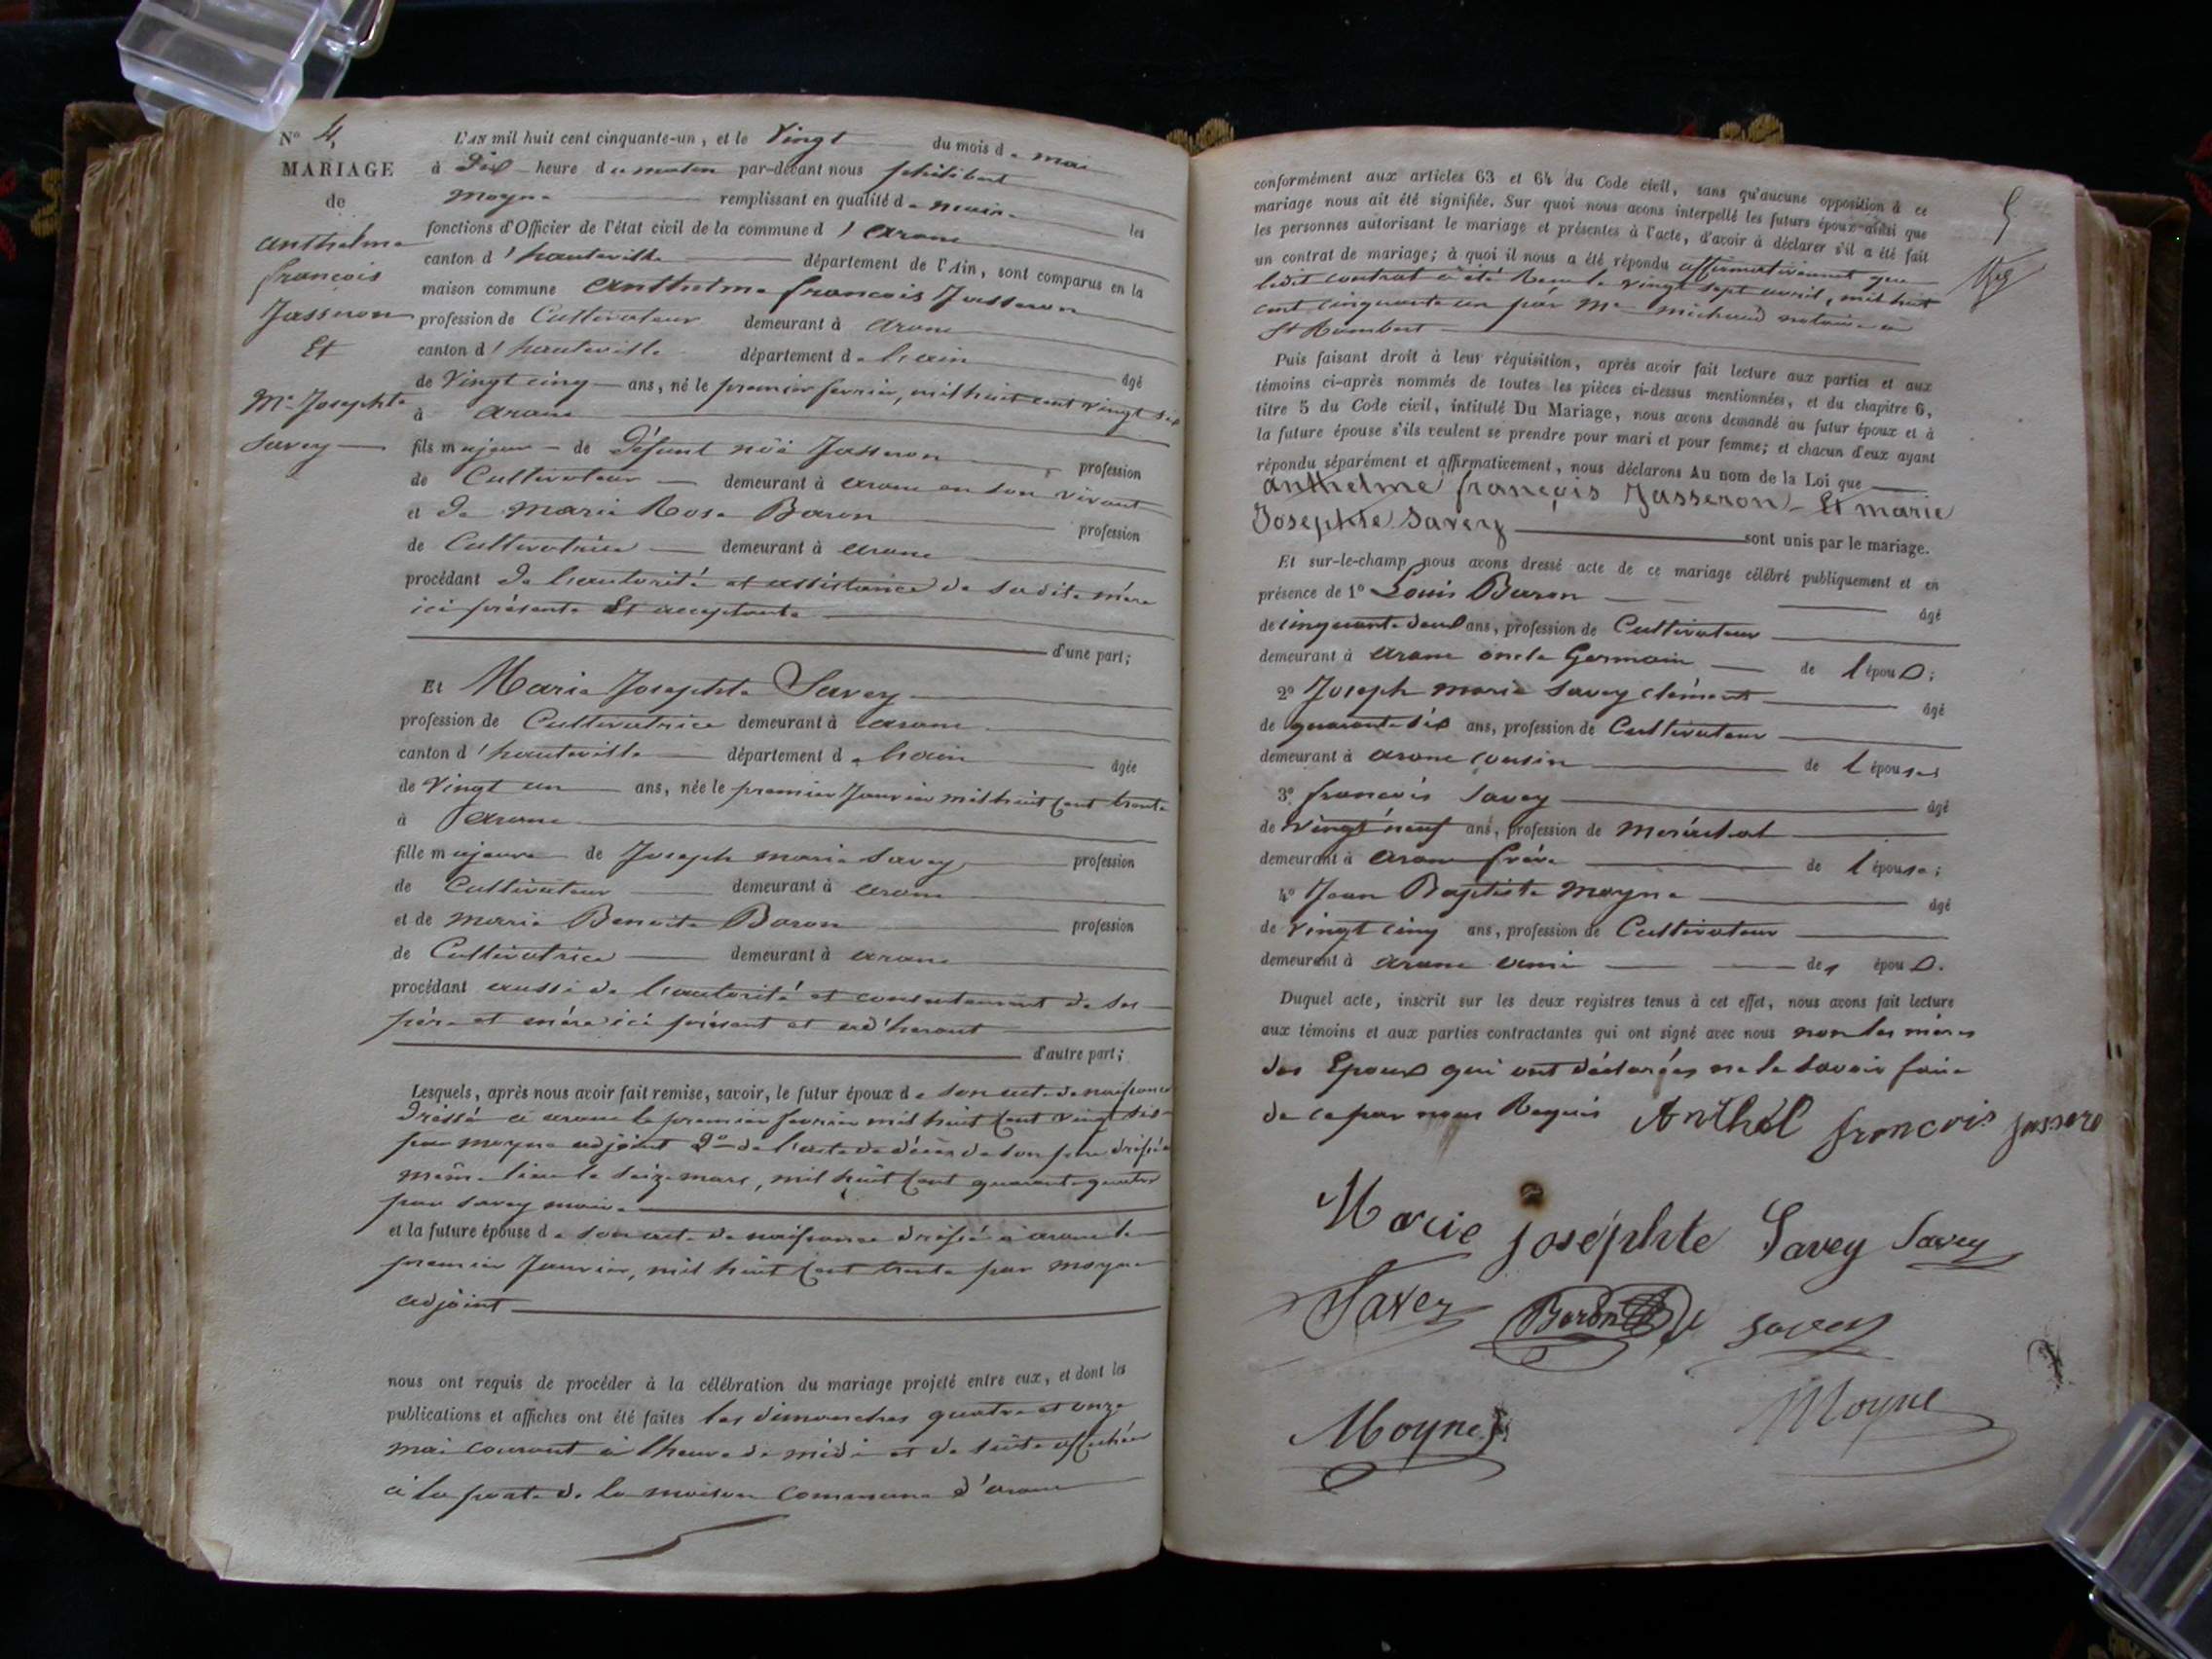 N° 4
MARIAGE
de
anthelme
françois
Jasseron
Et
Mie Josephte
Savey
L'AN mil huit cent cinquante-un, et le Vingt du mois de mai
à Dix heure du matin par-devant nous philibert
moyne remplissant en qualité de maire les
fonctions d'Officier de l'état civil de la commune d'aranc
canton d'hauteville département de l'Ain, sont comparus en la
maison commune anthelme françois Jasseron
profession de Cultivateur demeurant à aranc
canton d'hauteville département de l'ain âgé
de Vingt cinq ans, né le premier fevrier, mil huit cent vingt six
à aranc
fils majeur de Défunt Jasseron profession
de Cultivateur demeurant à aranc en son vivant
et de marie Rose Baron profession
de Cultivatrice demeurant à aranc
procédant de l'autorité et assistance de sadite mère
ici présente Et acceptante
d'une part;
Et Marie Josephte Savey
profession de Cultivatrice demeurant à aranc
canton d'hauteville département de l'ain âgée
de Vingt un ans, née le premier Janvier mil huit cent trente
à aranc
fille majeure de Joseph marie Savey profession
de Cultivateur demeurant à aranc
et de marie Benoite Baron profession
de Cultivatrice demeurant à aranc
procédant aussi de l'autorité et consentement de ses
père et mère ici présent et adhérant
d'autre part;
Lesquels, après nous avoir fait remise, savoir, le futur époux de son acte de naissance
dressé à aranc le premier fevrier mil huit cent vingt six
par moyne adjoint 2° de l'acte de décès de son père dressé
même lieu le seize mars, mil huit cent quarante quatre
par savey maire
et la future épouse de son acte de naissance dressé à aranc le
premier Janvier, mil huit cent trente par moyne
adjoint
nous ont requis de procéder à la célébration du mariage projeté entre eux, et dont les
publications et affiches ont été faites les dimanches quatre et onze
mai courant à l'heure de midi et de suite affichées
à la porte de la maison commune d'aranc
conformément aux articles 63 et 64 du Code civil, sans qu'aucune opposition à ce
mariage nous ait été signifiée. Sur quoi nous avons interpellé les futurs époux ainsi que
les personnes autorisant le mariage et présentes à l'acte, d'avoir à déclarer s'il a été fait
un contrat de mariage; à quoi il nous a été répondu affirmativement que
ledit contrat a été Reçu le vingt sept avril, mil huit
cent cinquante un par Me michaud notaire à
St Rambert
Puis faisant droit à leur réquisition, après avoir fait lecture aux parties et aux
témoins ci-après nommés de toutes les pièces ci-dessus mentionnées, et du chapitre 6,
titre 5 du Code civil, intitulé Du Mariage, nous avons demandé au futur époux et à
la future épouse s'ils veulent se prendre pour mari et pour femme; et chacun d'eux ayant
répondu séparément et affirmativement, nous déclarons Au nom de la Loi que
anthelme françois Jasseron Et marie
Josephte Savey sont unis par le mariage.
Et sur-le-champ nous avons dressé acte de ce mariage célébré publiquement et en
présence de 1° Louis Baron âgé
de cinquante deux ans, profession de Cultivateur
demeurant à aranc oncle Germain de l'époux;
2° Joseph marie savey clément âgé
de quarante six ans, profession de Cultivateur
demeurant à aranc cousin de l'épouse
3° françois Savey âgé
de vingt neuf ans, profession de maréchal
demeurant à aranc frère de l'épouse;
4° Jean Baptiste moyne âgé
de vingt cinq ans, profession de Cultivateur
demeurant à aranc ami de l'époux.
Duquel acte, inscrit sur les deux registres tenus à cet effet, nous avons fait lecture
aux témoins et aux parties contractantes qui ont signé avec nous non les mères
des Epoux qui ont déclarées ne le savoir faire
de ce par nous Requis Anthel francois jassero
Marie joséphte Savey Savey
Savey Baron savey
Moyne Moyne